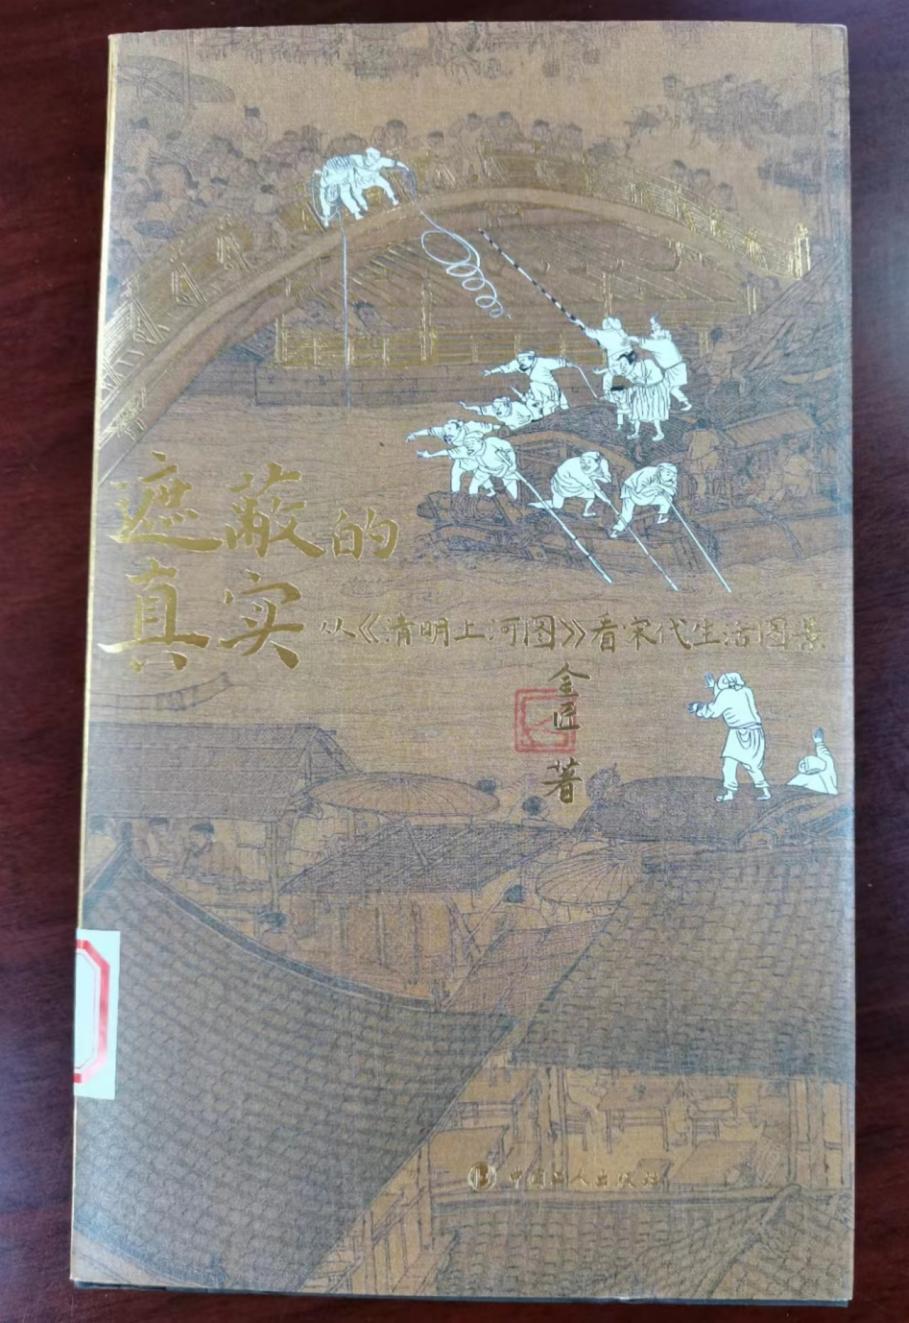 遮蔽的
真实
从《清明上河图》看宋代生活图景
金匠
著
中国工人出版社